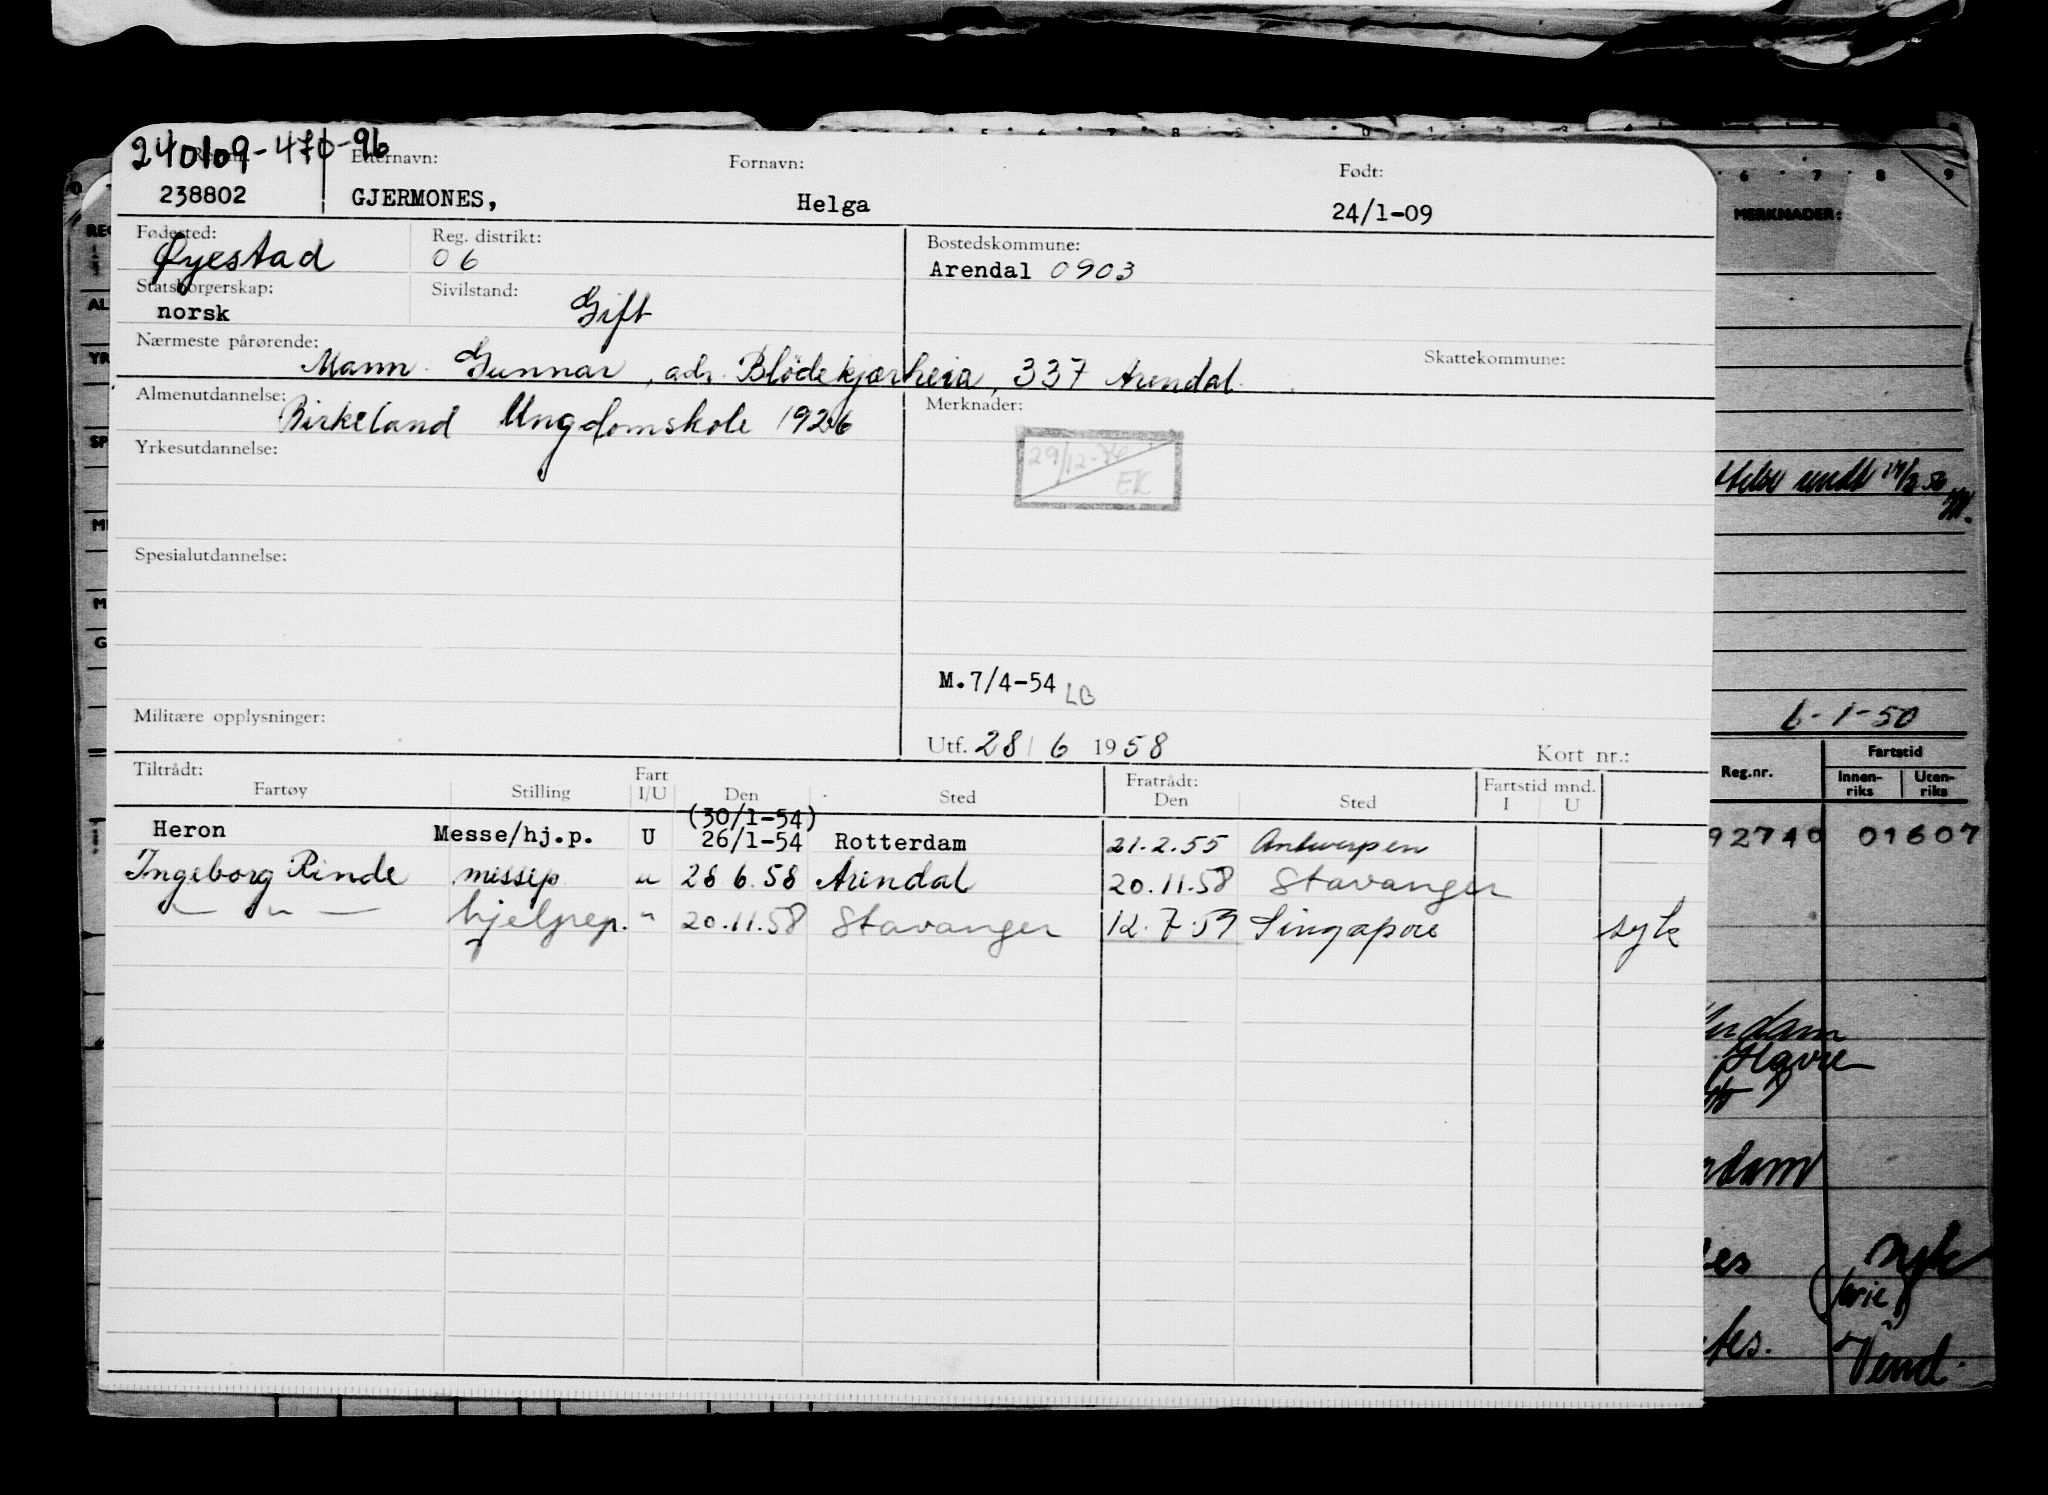 240109-470-96
Etternavn: Fornavn: Født:
238802 GJERMONES, Helga 24/1-09
Fødested: Reg. distrikt: Bostedskommune:
Øyestad 06 Arendal 0903
Statsborgerskap: Sivilstand:
norsk Gift
Nærmeste pårørende: Skattekommune:
Mann Gunnar, adr. Blödekjærheia, 337 Arendal
Almenutdannelse: Merknader:
Birkeland Ungdomskole 1926
Yrkesutdannelse:
EK
Spesialutdannelse:
M.7/4-54 LB
Militære opplysninger:
Utf. 28/6 1958 Kort nr.:
Tiltrådt: Fart Fratrådt: Fartstid mnd.
Fartøy Stilling I/U Den Sted Den Sted I U
(30/1-54)
Heron Messe/hj.p. U 26/1-54 Rotterdam 21.2.55 Antwerpen
Ingeborg Rinde messep " 28 6.58 Arendal 20.11.58 Stavanger
— " — hjelpep. " 20.11.58 Stavanger 12.7.59 Singapore syk
MERKNADER:
6-1-50
Reg.nr. Fartstid
Innen-riks Uten-riks
92740 01607
Havre
syk
Vend.